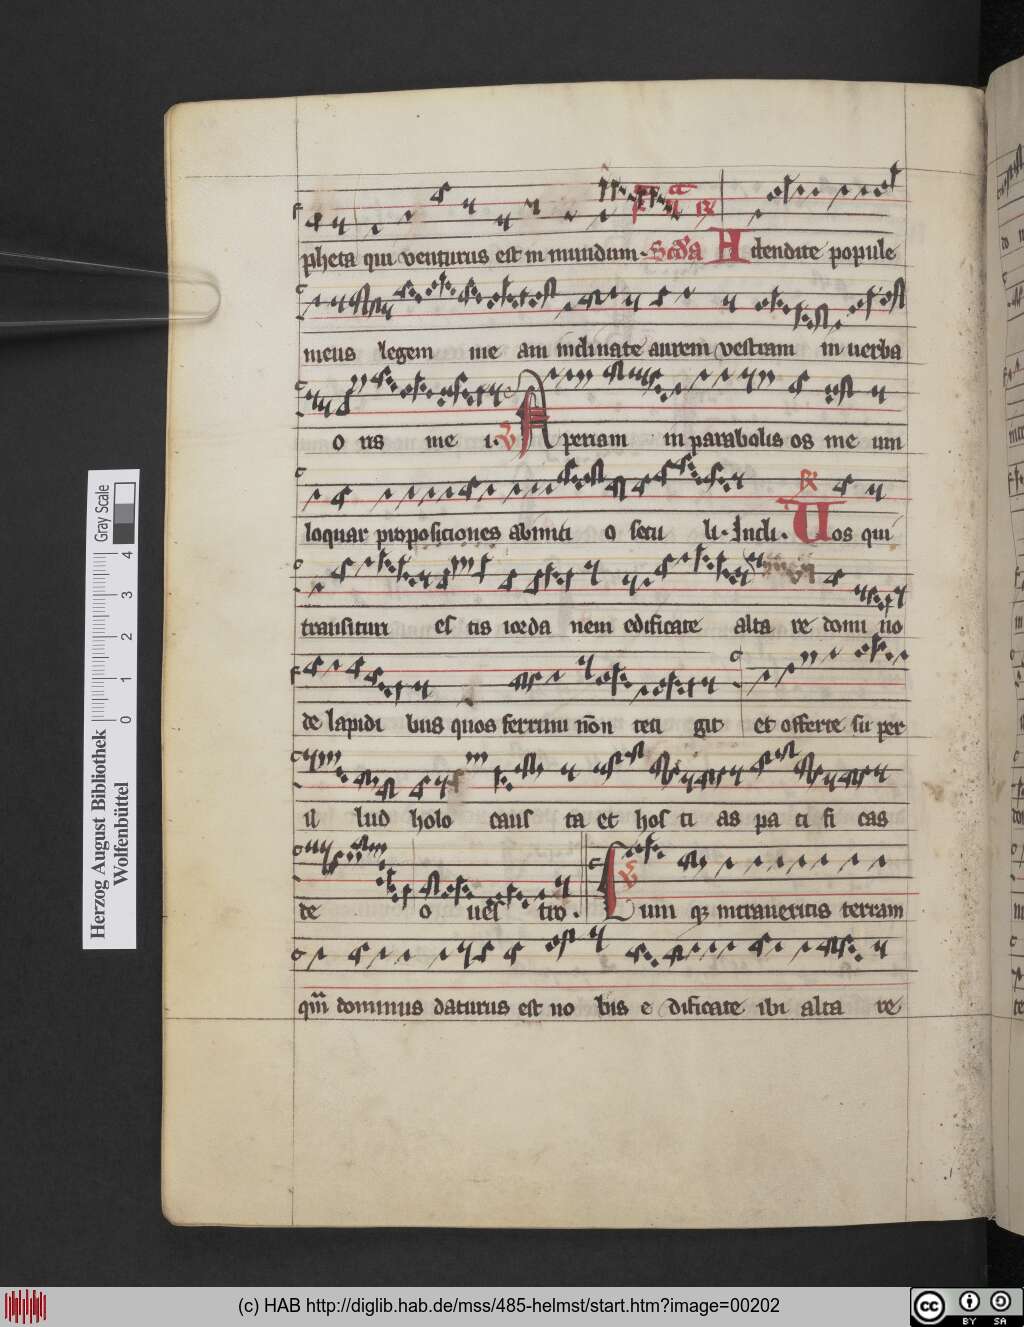 pheta qui venturus est in mundum. Scd'a Adtendite popule
meus legem me am inclinate aurem vestram in uerba
o ris me i. V Aperiam in parabolis os me um
loquar propositiones ab inici o secu li. Incli. Uos qui
transituri es tis iorda nem edificate alta re domi no
de lapidi bus quos ferrum nōn teti git et offerte su per
il lud holo caus ta et hos ti as pa ci fi cas
de o ues tro. V Cum qz intraueritis terram
qm̄ dominus daturus est no bis e dificate ibi alta re
Gray Scale
0 1 2 3 4
Herzog August Bibliothek
Wolfenbüttel
(c) HAB http://diglib.hab.de/mss/485-helmst/start.htm?image=00202
cc BY SA